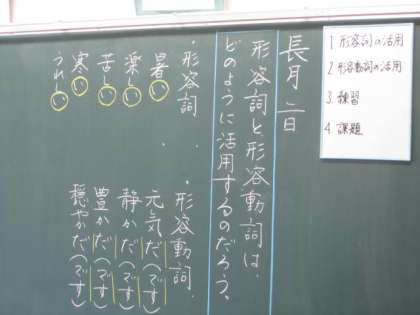 1 形容詞の活用
2 形容動詞の活用
3. 練習
4. 課題
長月 二日
形容詞と形容動詞は、
どのように活用するのだろう。
・形容詞
暑い
楽しい
苦しい
寒い
うれしい
・形容動詞
元気だ(です)
静かだ(です)
豊かだ(です)
穏やかだ(です)